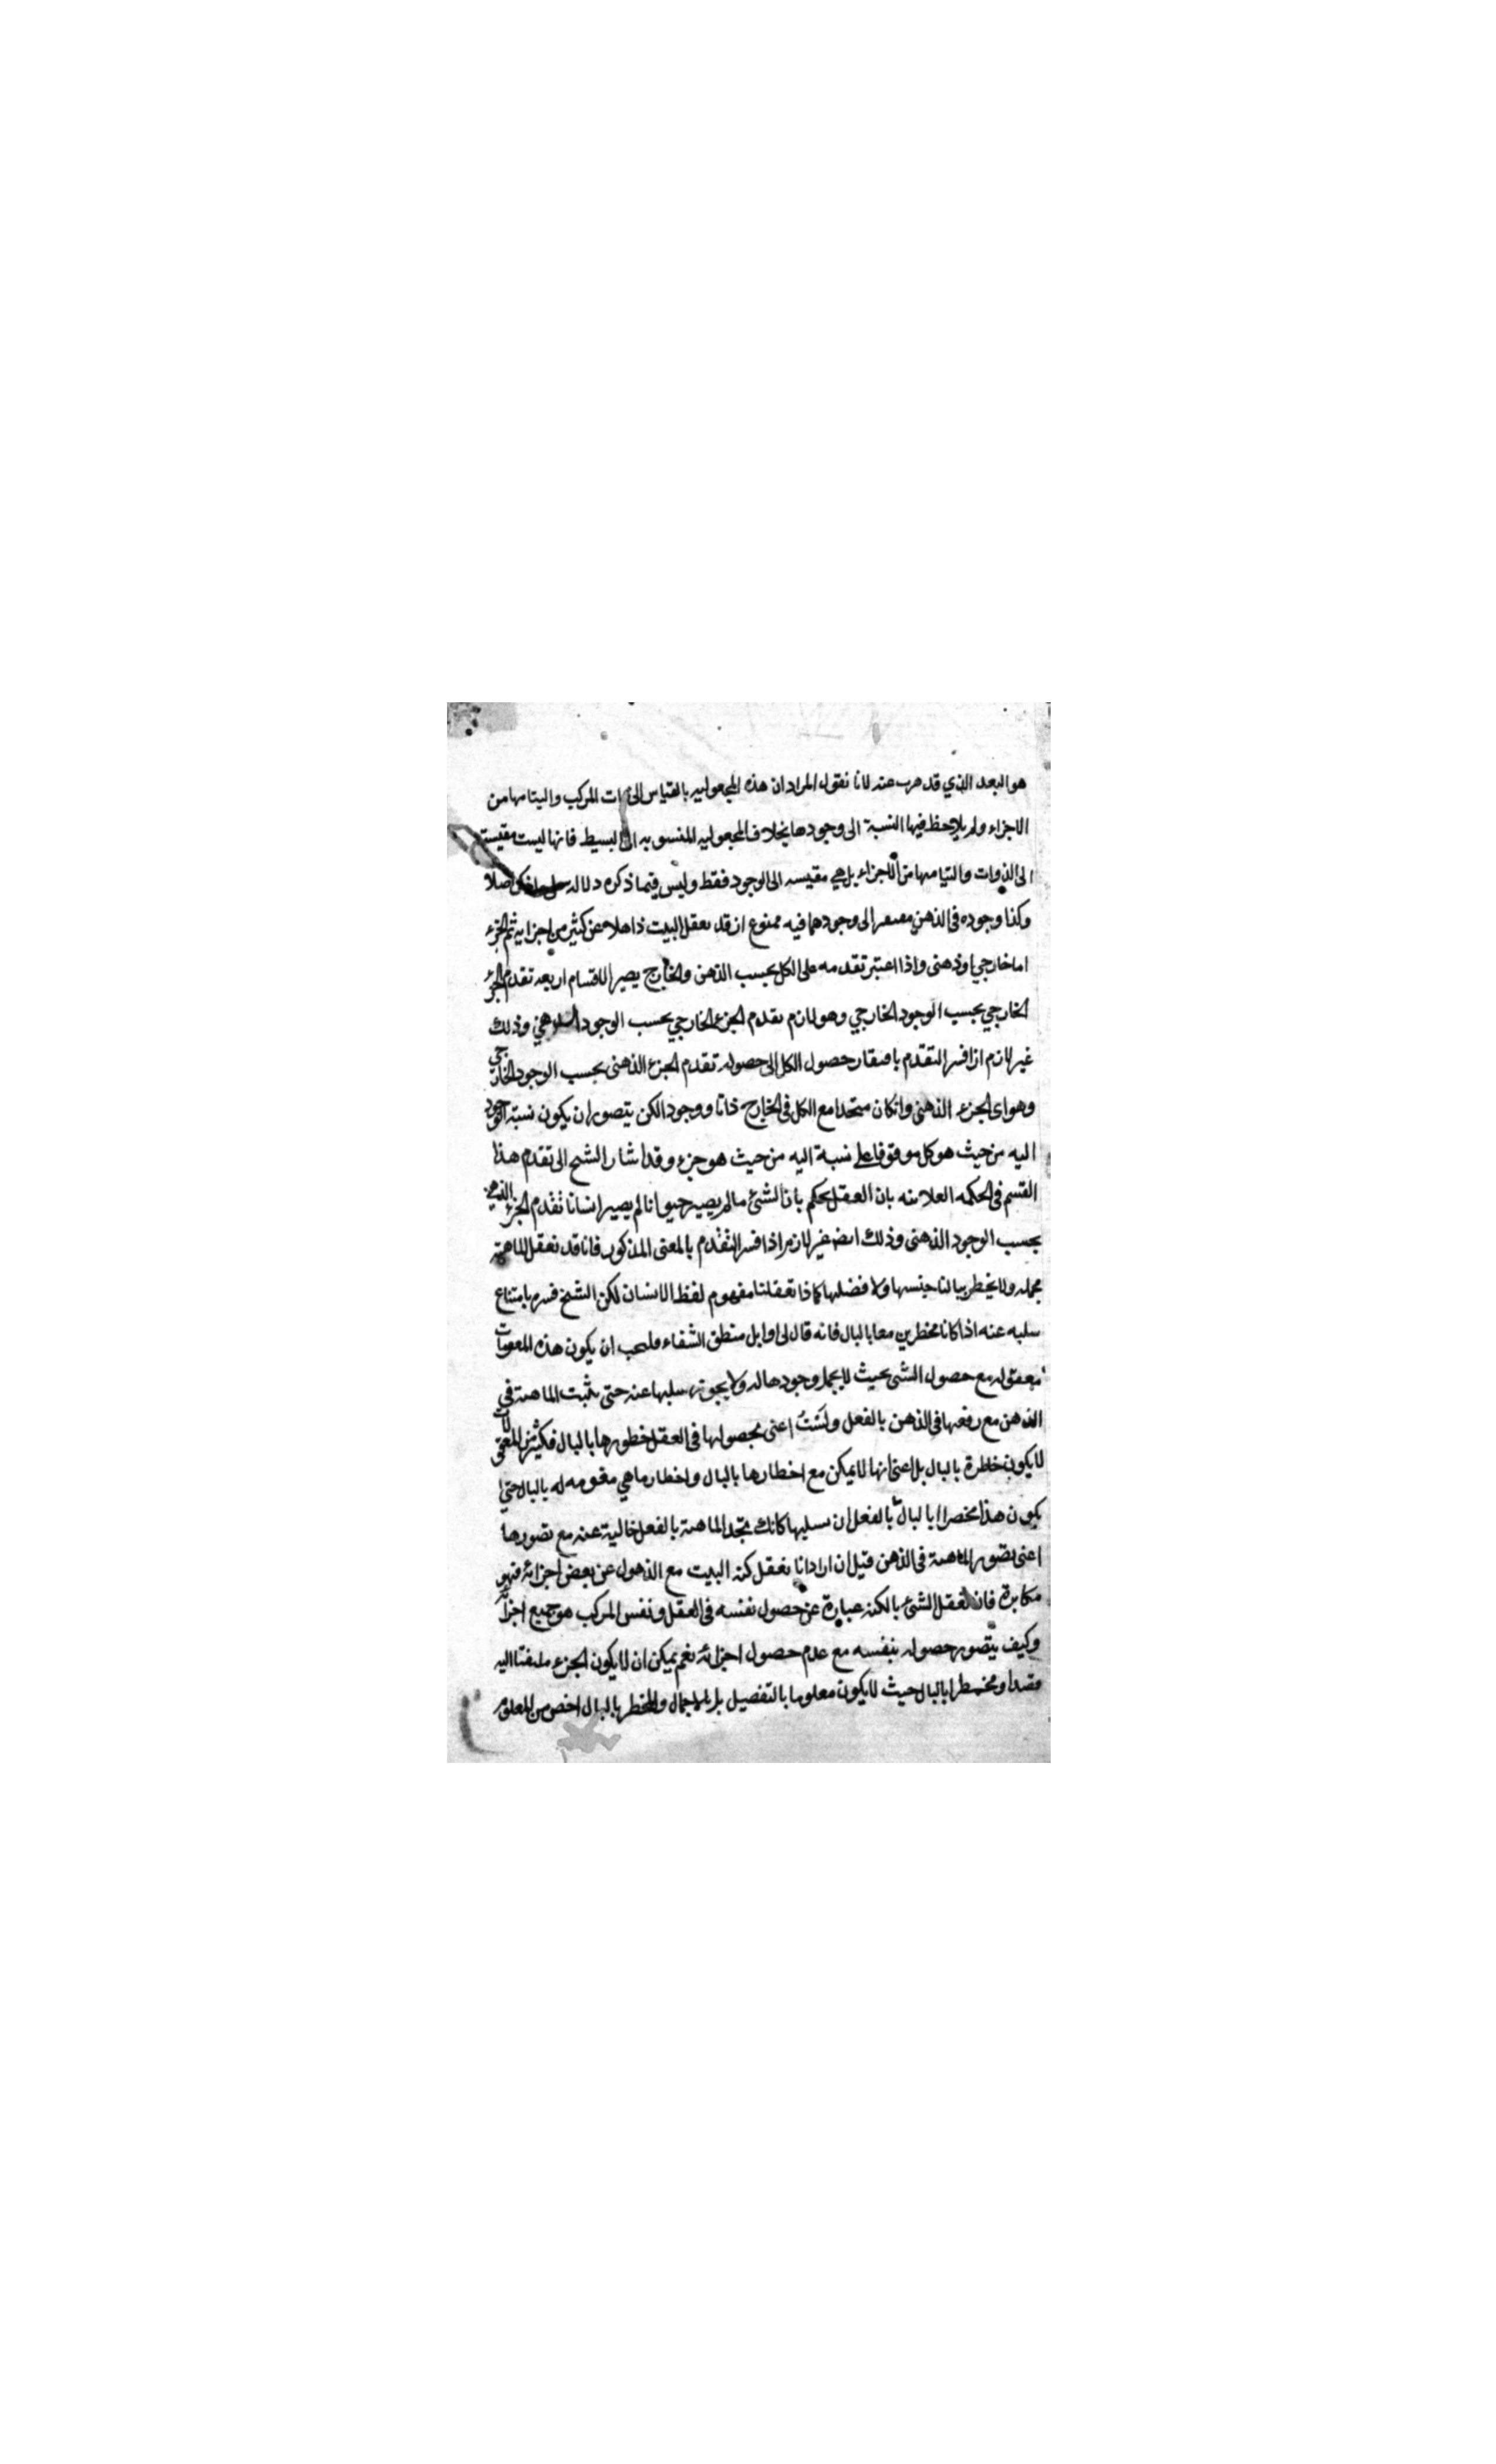 هو البعد الذي قد هرب عنه لانا نقول المراد ان هذه المجعولية بالقياس الى ذات المركب والتيامها من
الاجزاء ولم يلاحظ فيها النسبة الى وجودها بخلاف المجعولية المنسوبه الى البسيط فانها ليست مقيسة
الى الذوات والتيامها من الاجزاء بل هي مقيسه الى الوجود فقط وليس فيما ذكره دلاله اصلا
وكذا وجوده فى الذهن مفتقر الى وجودهما فيه ممنوع اذ قد نعقل البيت ذاهلا عن كثير من اجزايه ثم الجزء
اما خارجي اوذهنى واذا اعتبر تقدمه على الكل بحسب الذهن والخارج يصير الاقسام اربعه تقدم الجزء
الخارجي بحسب الوجود الخارجي وهو لازم تقدم الجزء الخارجي بحسب الوجود الذهني وذلك
غير لازم اذا فسر التقدم بافتقار حصول الكل الى حصوله تقدم الجزء الذهنى بحسب الوجود الخارجي
وهو اى الجزء الذهنى وان كان متحدا مع الكل فى الخارج ذاتا ووجودا لكن يتصور ان يكون نسبة الوجود
اليه من حيث هو كل موقوفا على نسبة اليه من حيث هو جزء وقد اشار الشيخ الى تقدم هذا
القسم فى الحكمه العلائيه بان العقل يحكم بان الشئ مالم يصير حيوانا لم يصير انسانا تقدم الجزء الذهني
بحسب الوجود الذهنى وذلك ايض غير لازم اذا فسر التقدم بالمعنى المذكور فانا قد نعقل الماهية
مجمله ولا يخطر ببالنا جنسها ولا فصلها كما اذا تعقلنا مفهوم لفظ الانسان لكن الشيخ فسره بامتناع
سلبه عنه اذا كانا مخطرين معا بالبال فانه قال فى اوايل منطق الشفاء فيجب ان يكون هذه المقومات
معقوله مع حصول الشئ بحيث لا يجهل وجودها له ولا يجوز سلبها عنه حتى يثبت الماهية في
الذهن مع رفعها فى الذهن بالفعل ولستُ اعنى بحصولها فى العقل خطورها بالبال فكثير من المعقولات
لا يكون خاطرة بالبال بل اعنى انها لا يمكن مع اخطارها بالبال واخطار ماهي مقومه له بالبال حتى
يكون هذا مخطرا بالبال بالفعل ان يسلبها كانك تجد الماهية بالفعل خالية عنه مع تصورها
اعنى تصور الماهية فى الذهن قيل ان اراد انا نعقل كنه البيت مع الذهول عن بعض اجزائه فهو
مكابرة فان تعقل الشئ بالكنه عبارة عن حصول نفسه فى العقل ونفس المركب هو جميع اجزائه
وكيف يتصور حصوله بنفسه مع عدم حصول اجزائه نعم يمكن ان لا يكون الجزء ملتفتا اليه
قصدا ومخطرا بالبال حيث لا يكون معلوما بالتفصيل بل بالاجمال والمخطر بالبال اخص من المعلوم